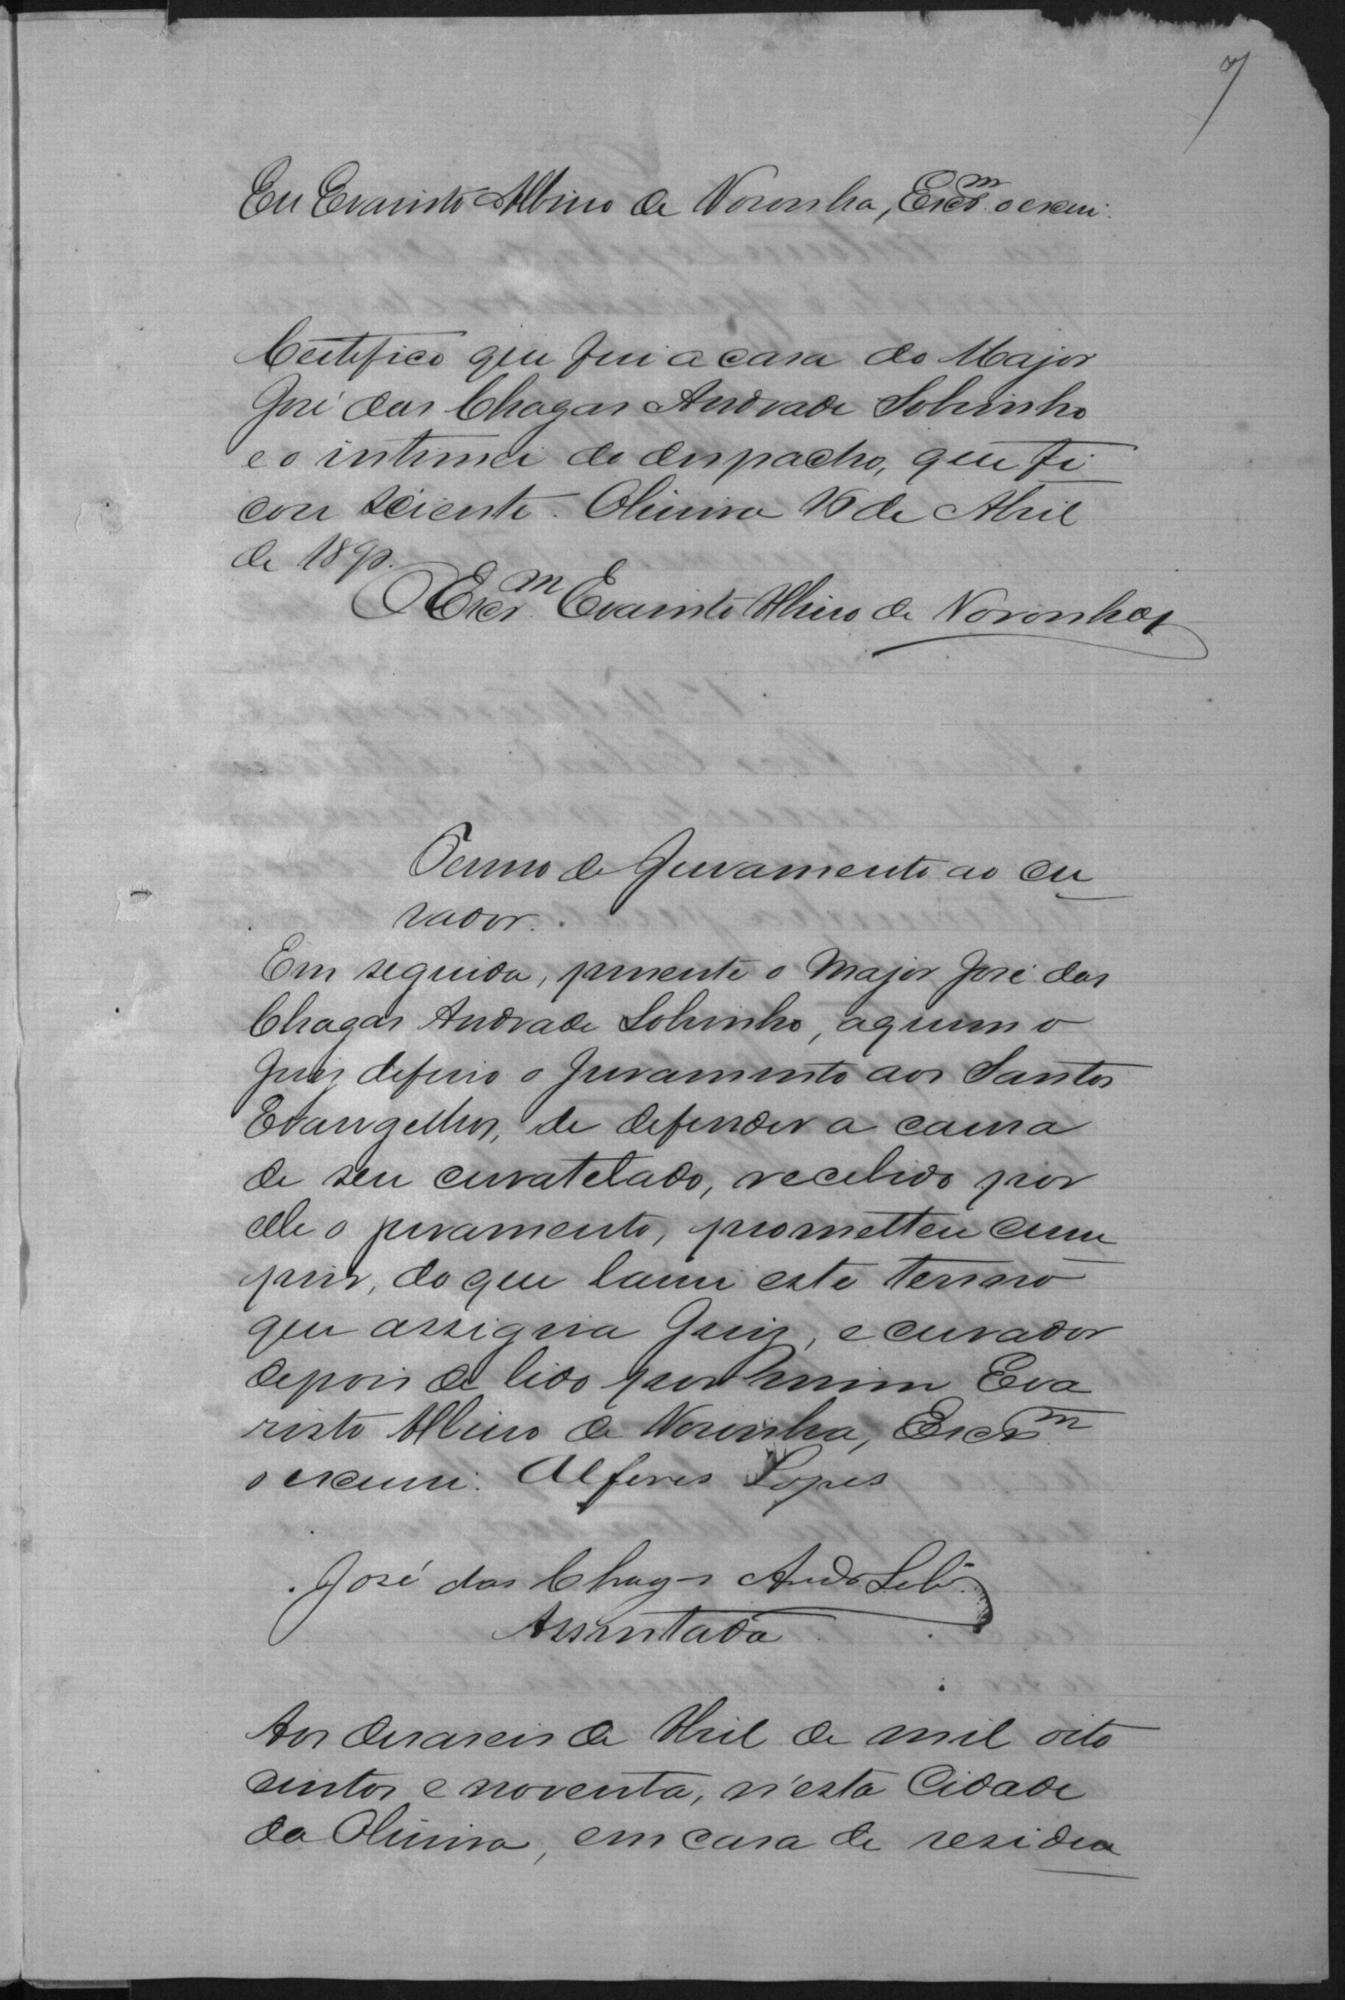 7
Eu Evaristo Albino de Noronha, Escr.m o escrvi.
Certifico que fui a casa do Major
José das Chagas Andrade Sobrinho
e o intimei do despacho, que fi
cou sciente. Oliveira 16 de Abril
de 1890.
O Escr.m Evaristo Albino de Noronha
Termo de Juramento ao cu
rador.
Em seguida, presente o Major José das
Chagas Andrade Sobrinho, a quem o
Juiz deferio o Juramento aos Santos
Evangelhos, de defender a causa
de seu curatelado, recebido por
elle o juramento, prometteu cum
prir, do que lavrei este termo
que assigna Juiz, e curador
depois de lido por mim Eva
risto Albino de Noronha, Escr.m
o escrevi. Alferes Lopes
José das Chagas Andr. Sobr.
Assentada
Aos deraseis de Abril de mil oito
centos e noventa, n'esta Cidade
da Oliveira, em casa de residen